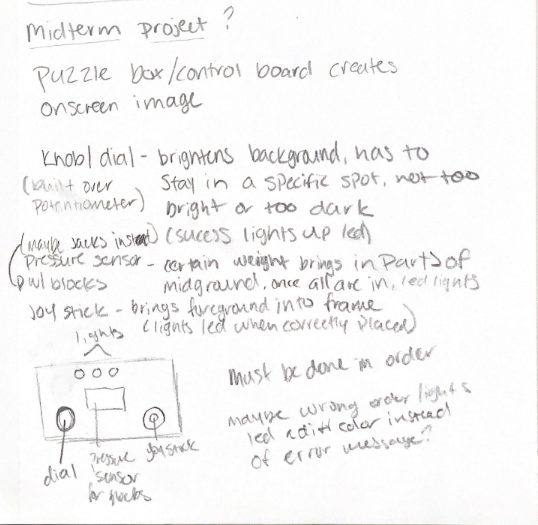 Midterm project?
Puzzle box/control board creates
onscreen image
Knob/dial - brightens background, has to
(built over
potentiometer)
stay in a specific spot, not too
bright or too dark
(sucess lights up led)
(maybe jacks instead)
Pressure sensor - certain weight brings in parts of
pwl blocks
midground, once all are in, led lights
Joystick - brings foreground into frame
(lights led when correctly placed)
lights
dial
Pressure
sensor
for blocks
Joystick
Must be done in order
maybe wrong order lights
led a diff color instead
of error message?